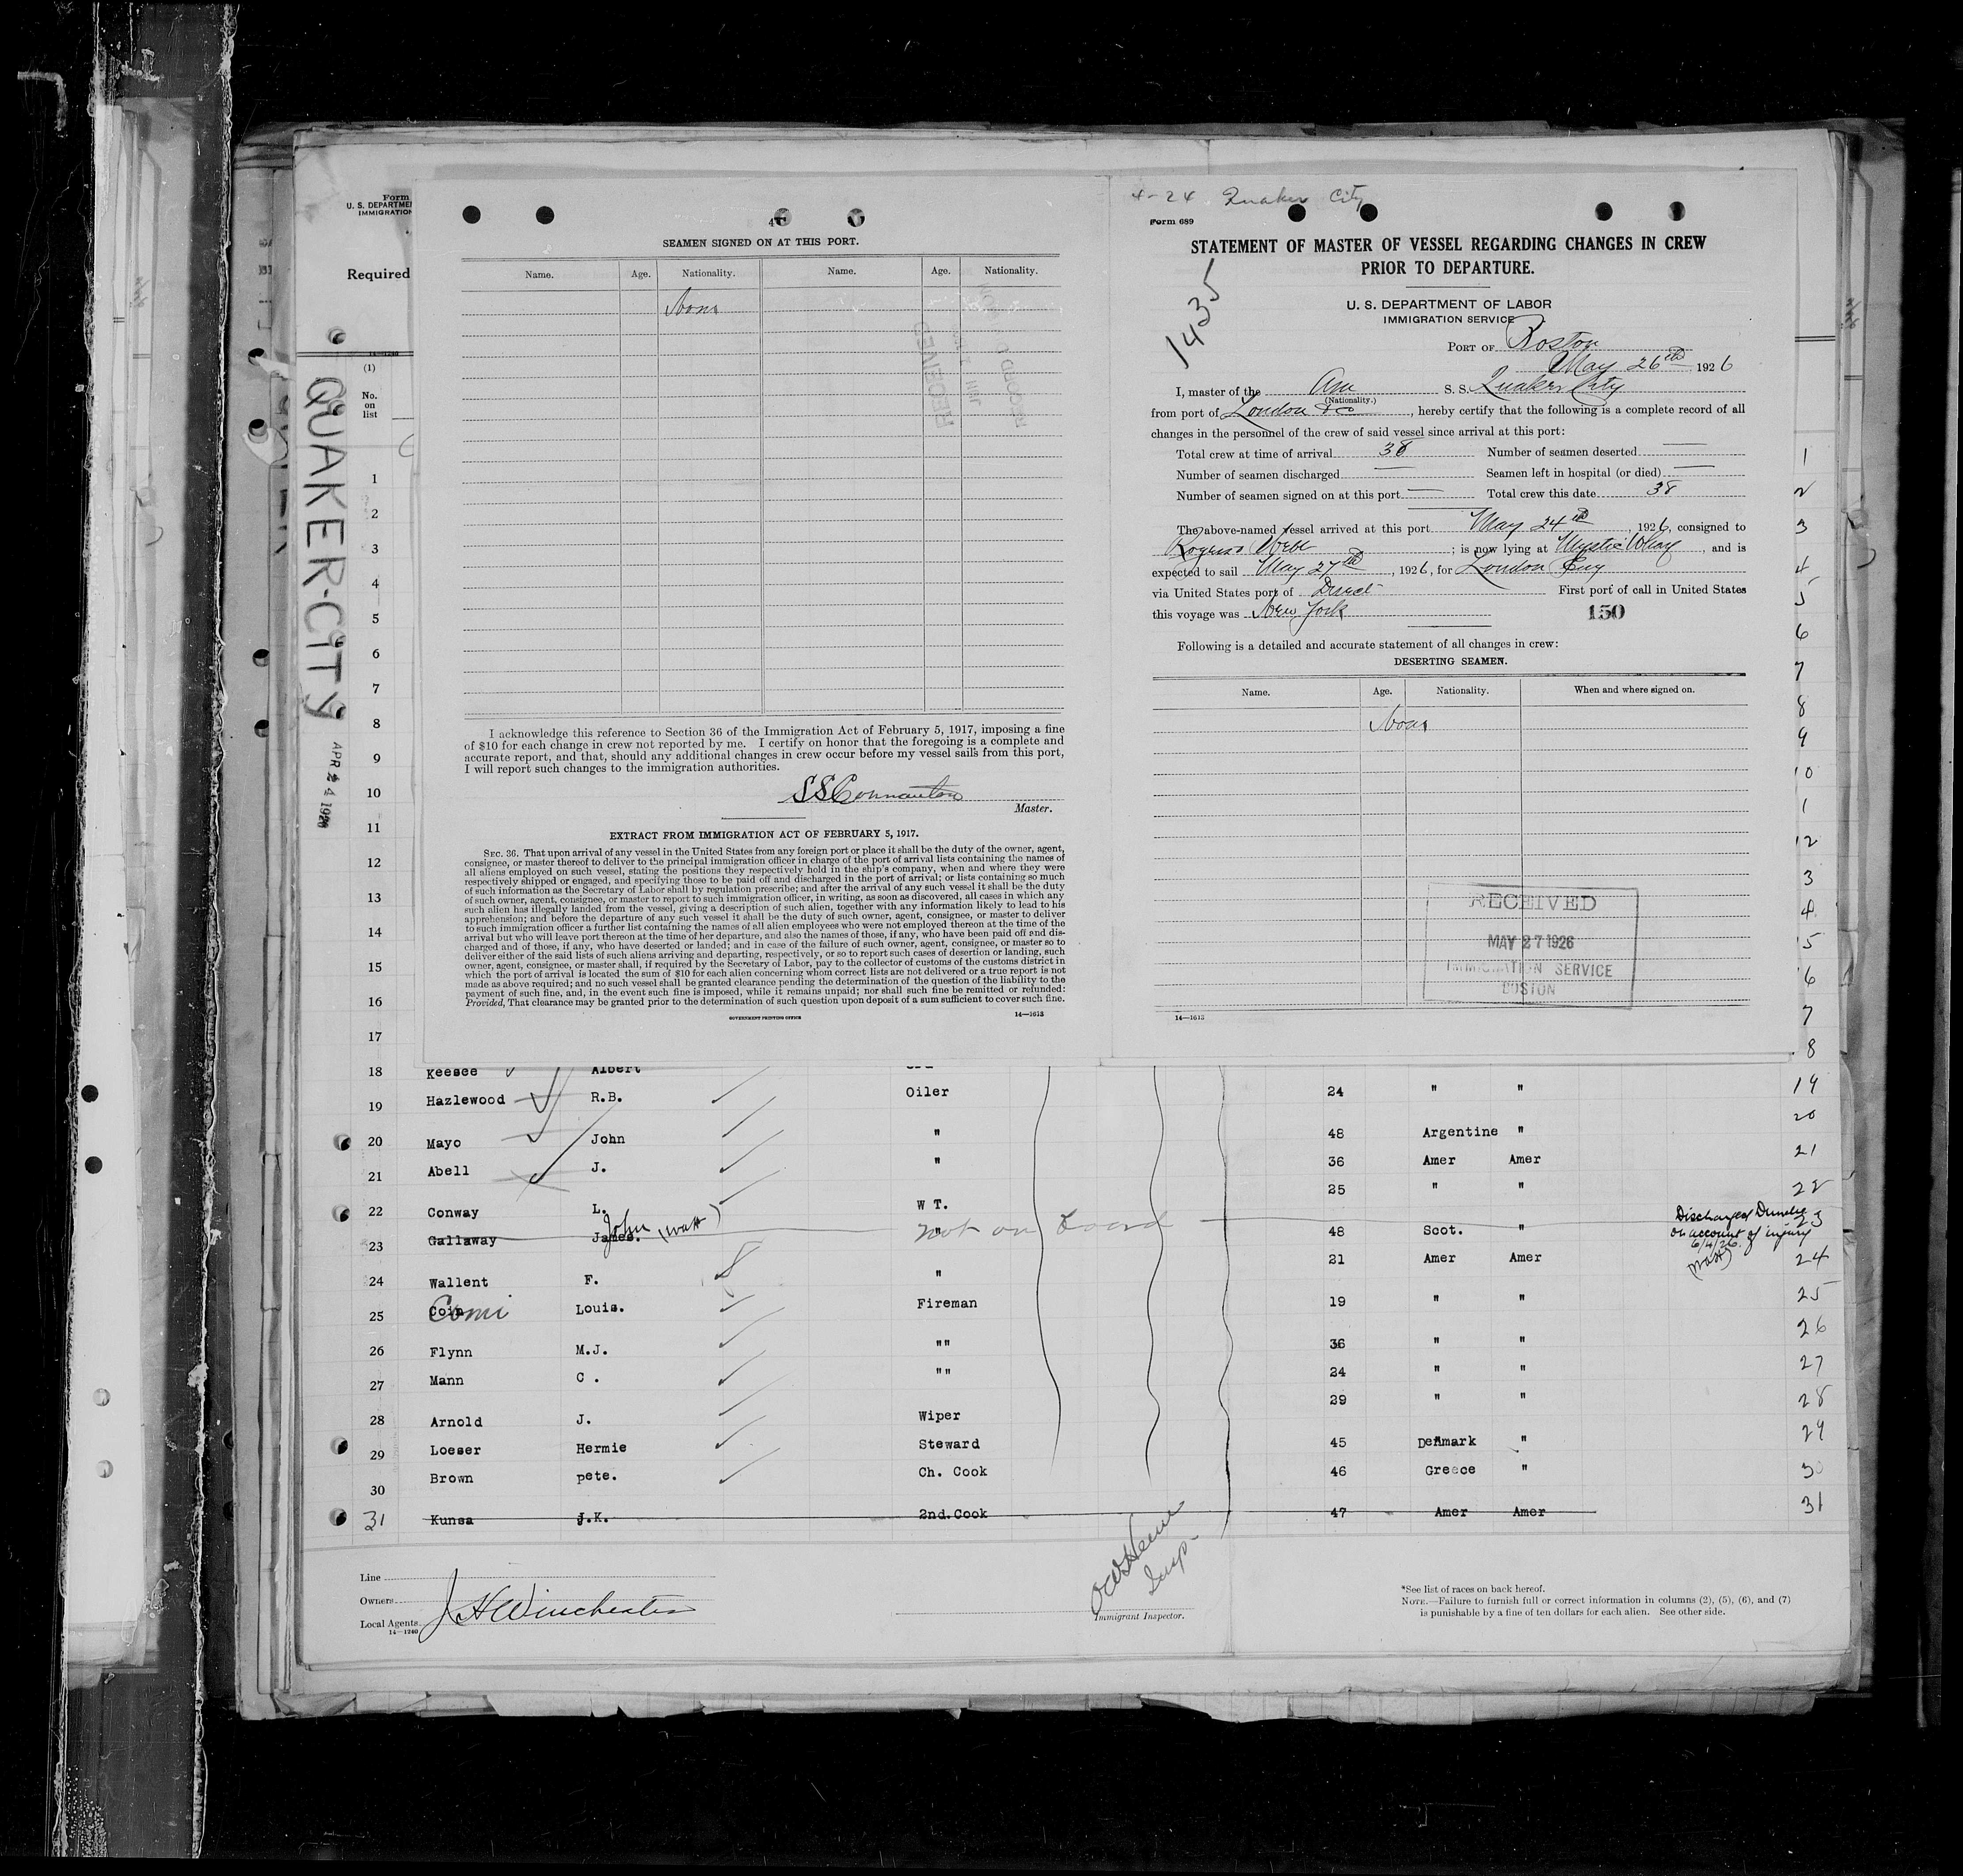 Form
U. S. DEPARTME
IMMIGRATION
Required
14-1240
(1)
No.
on
list
QUAKER-CITY
APR 24 1926
1
2
3
4
5
6
7
8
9
10
11
12
13
14
15
16
17
4
SEAMEN SIGNED ON AT THIS PORT.
Name. Age. Nationality. Name. Age. Nationality.
None
RECEIVED
I acknowledge this reference to Section 36 of the Immigration Act of February 5, 1917, imposing a fine
of $10 for each change in crew not reported by me. I certify on honor that the foregoing is a complete and
accurate report, and that, should any additional changes in crew occur before my vessel sails from this port,
I will report such changes to the immigration authorities.
Master.
EXTRACT FROM IMMIGRATION ACT OF FEBRUARY 5, 1917.
SEC. 36. That upon arrival of any vessel in the United States from any foreign port or place it shall be the duty of the owner, agent,
consignee, or master thereof to deliver to the principal immigration officer in charge of the port of arrival lists containing the names of
all aliens employed on such vessel, stating the positions they respectively hold in the ship's company, when and where they were
respectively shipped or engaged, and specifying those to be paid off and discharged in the port of arrival; or lists containing so much
of such information as the Secretary of Labor shall by regulation prescribe; and after the arrival of any such vessel it shall be the duty
of such owner, agent, consignee, or master to report to such immigration officer, in writing, as soon as discovered, all cases in which any
such alien has illegally landed from the vessel, giving a description of such alien, together with any information likely to lead to his
apprehension; and before the departure of any such vessel it shall be the duty of such owner, agent, consignee, or master to deliver
to such immigration officer a further list containing the names of all alien employees who were not employed thereon at the time of the
arrival but who will leave port thereon at the time of her departure, and also the names of those, if any, who have been paid off and dis-
charged and of those, if any, who have deserted or landed; and in case of the failure of such owner, agent, consignee, or master so to
deliver either of the said lists of such aliens arriving and departing, respectively, or so to report such cases of desertion or landing, such
owner, agent, consignee, or master, shall, if required by the Secretary of Labor, pay to the collector of customs of the customs district in
which the port of arrival is located the sum of $10 for each alien concerning whom correct lists are not delivered or a true report is not
made as above required; and no such vessel shall be granted clearance pending the determination of the question of the liability to the
payment of such fine, and, in the event such fine is imposed, while it remains unpaid; nor shall such fine be remitted or refunded:
Provided, That clearance may be granted prior to the determination of such question upon deposit of a sum sufficient to cover such fine.
GOVERNMENT PRINTING OFFICE 14—1613
4-24 Quaker City
Form 689
STATEMENT OF MASTER OF VESSEL REGARDING CHANGES IN CREW
PRIOR TO DEPARTURE.
1435
U. S. DEPARTMENT OF LABOR
IMMIGRATION SERVICE
PORT OF Boston
May 26th 1926
I, master of the Am S. S. Quaker City
(Nationality.)
from port of London &c, hereby certify that the following is a complete record of all
changes in the personnel of the crew of said vessel since arrival at this port:
Total crew at time of arrival 38 Number of seamen deserted —
Number of seamen discharged — Seamen left in hospital (or died) —
Number of seamen signed on at this port — Total crew this date 38
The above-named vessel arrived at this port May 24th, 1926, consigned to
Rogers & Webb; is now lying at Mystic Wharf, and is
expected to sail May 27th, 1926, for London Eng
via United States port of Direct First port of call in United States
this voyage was New York
150
Following is a detailed and accurate statement of all changes in crew:
DESERTING SEAMEN.
Name. Age. Nationality. When and where signed on.
None
RECEIVED
MAY 27 1926
IMMIGRATION SERVICE
BOSTON
14—1613
1
2
3
4
5
6
7
8
9
10
1
12
3
4
5
6
7
8
18 Keesee Albert
19 Hazlewood R.B. Oiler 24 " " 19
20 Mayo John " 48 Argentine " 20
21 Abell J. " 36 Amer Amer 21
22 Conway L. W T. 25 " " 22
23 Gallaway James. John (Watt) " not on board 48 Scot. " 23
Discharged Dundee
on account of injury
6/4/26.
(Watt)
24 Wallent F. " 21 Amer Amer 24
25 Coin Comi Louis. Fireman 19 " " 25
26 Flynn M.J. "" 36 " " 26
27 Mann C. "" 24 " " 27
28 Arnold J. Wiper 29 " " 28
29 Loeser Hermie Steward 45 Denmark " 29
30 Brown pete. Ch. Cook 46 Greece " 30
31 Kunsa J.K. 2nd.Cook 47 Amer Amer 31
Line
Owners
Local Agents J H Winchester
14—1240
Insp-
Immigrant Inspector.
*See list of races on back hereof.
NOTE.—Failure to furnish full or correct information in columns (2), (5), (6), and (7)
is punishable by a fine of ten dollars for each alien. See other side.